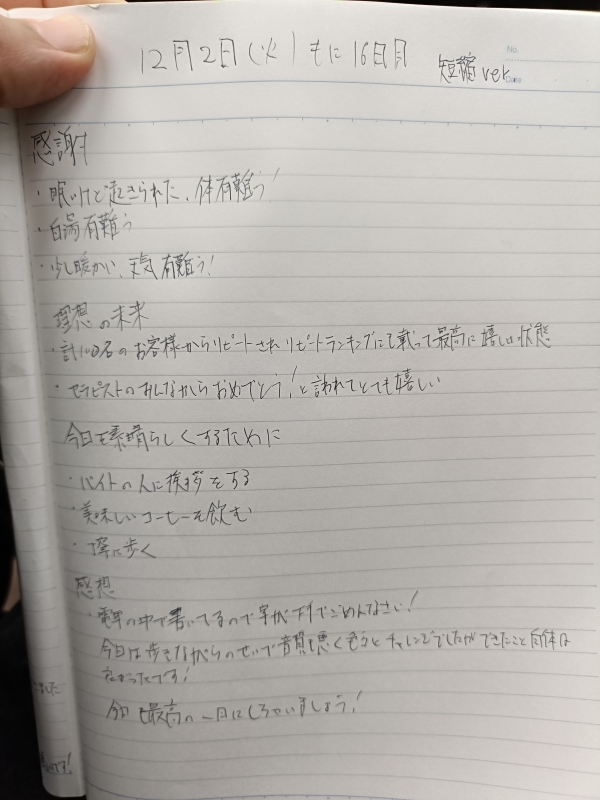 12月2日(火) もに16日目
短縮ver.
No.
Date
感謝
・眠いけど起きられた、体有難う!
・白湯有難う
・少し暖かい、天気有難う!
理想の未来
・計100名のお客様からリピートされリピートランキングにて載って最高に嬉しい状態
・セラピストのみんなからおめでとう!と言われてとても嬉しい
今日を素晴らしくするために
・バイトの人に挨拶をする
・美味しいコーヒーを飲む
・丁寧に歩く
感想
・電車の中で書いてるので字が下手でごめんなさい!
今日は歩きながらのせいで音質も悪く色々とチャレンジでしたができたこと自体は
よかったです!
今日も最高の一日にしちゃいましょう!